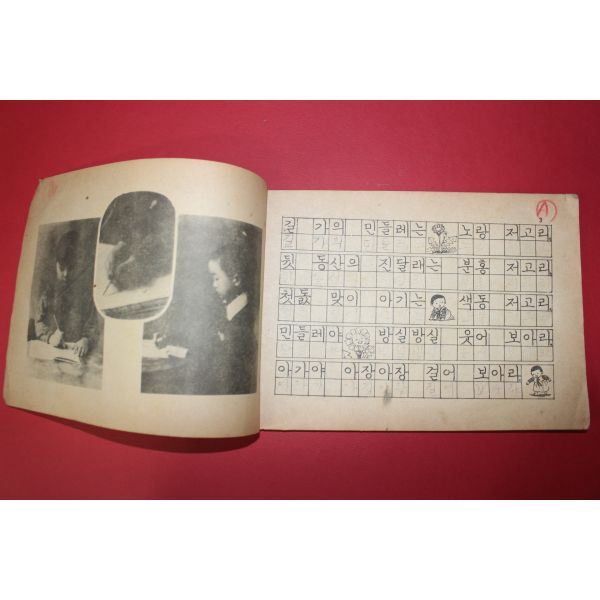 A
3
길 가의 민들레는 노랑 저고리
뒷 동산의 진달래는 분홍 저고리
첫돐 맞이 아기는 색동 저고리
민들레야 방실방실 웃어 보아라
아가야 아장아장 걸어 보아라